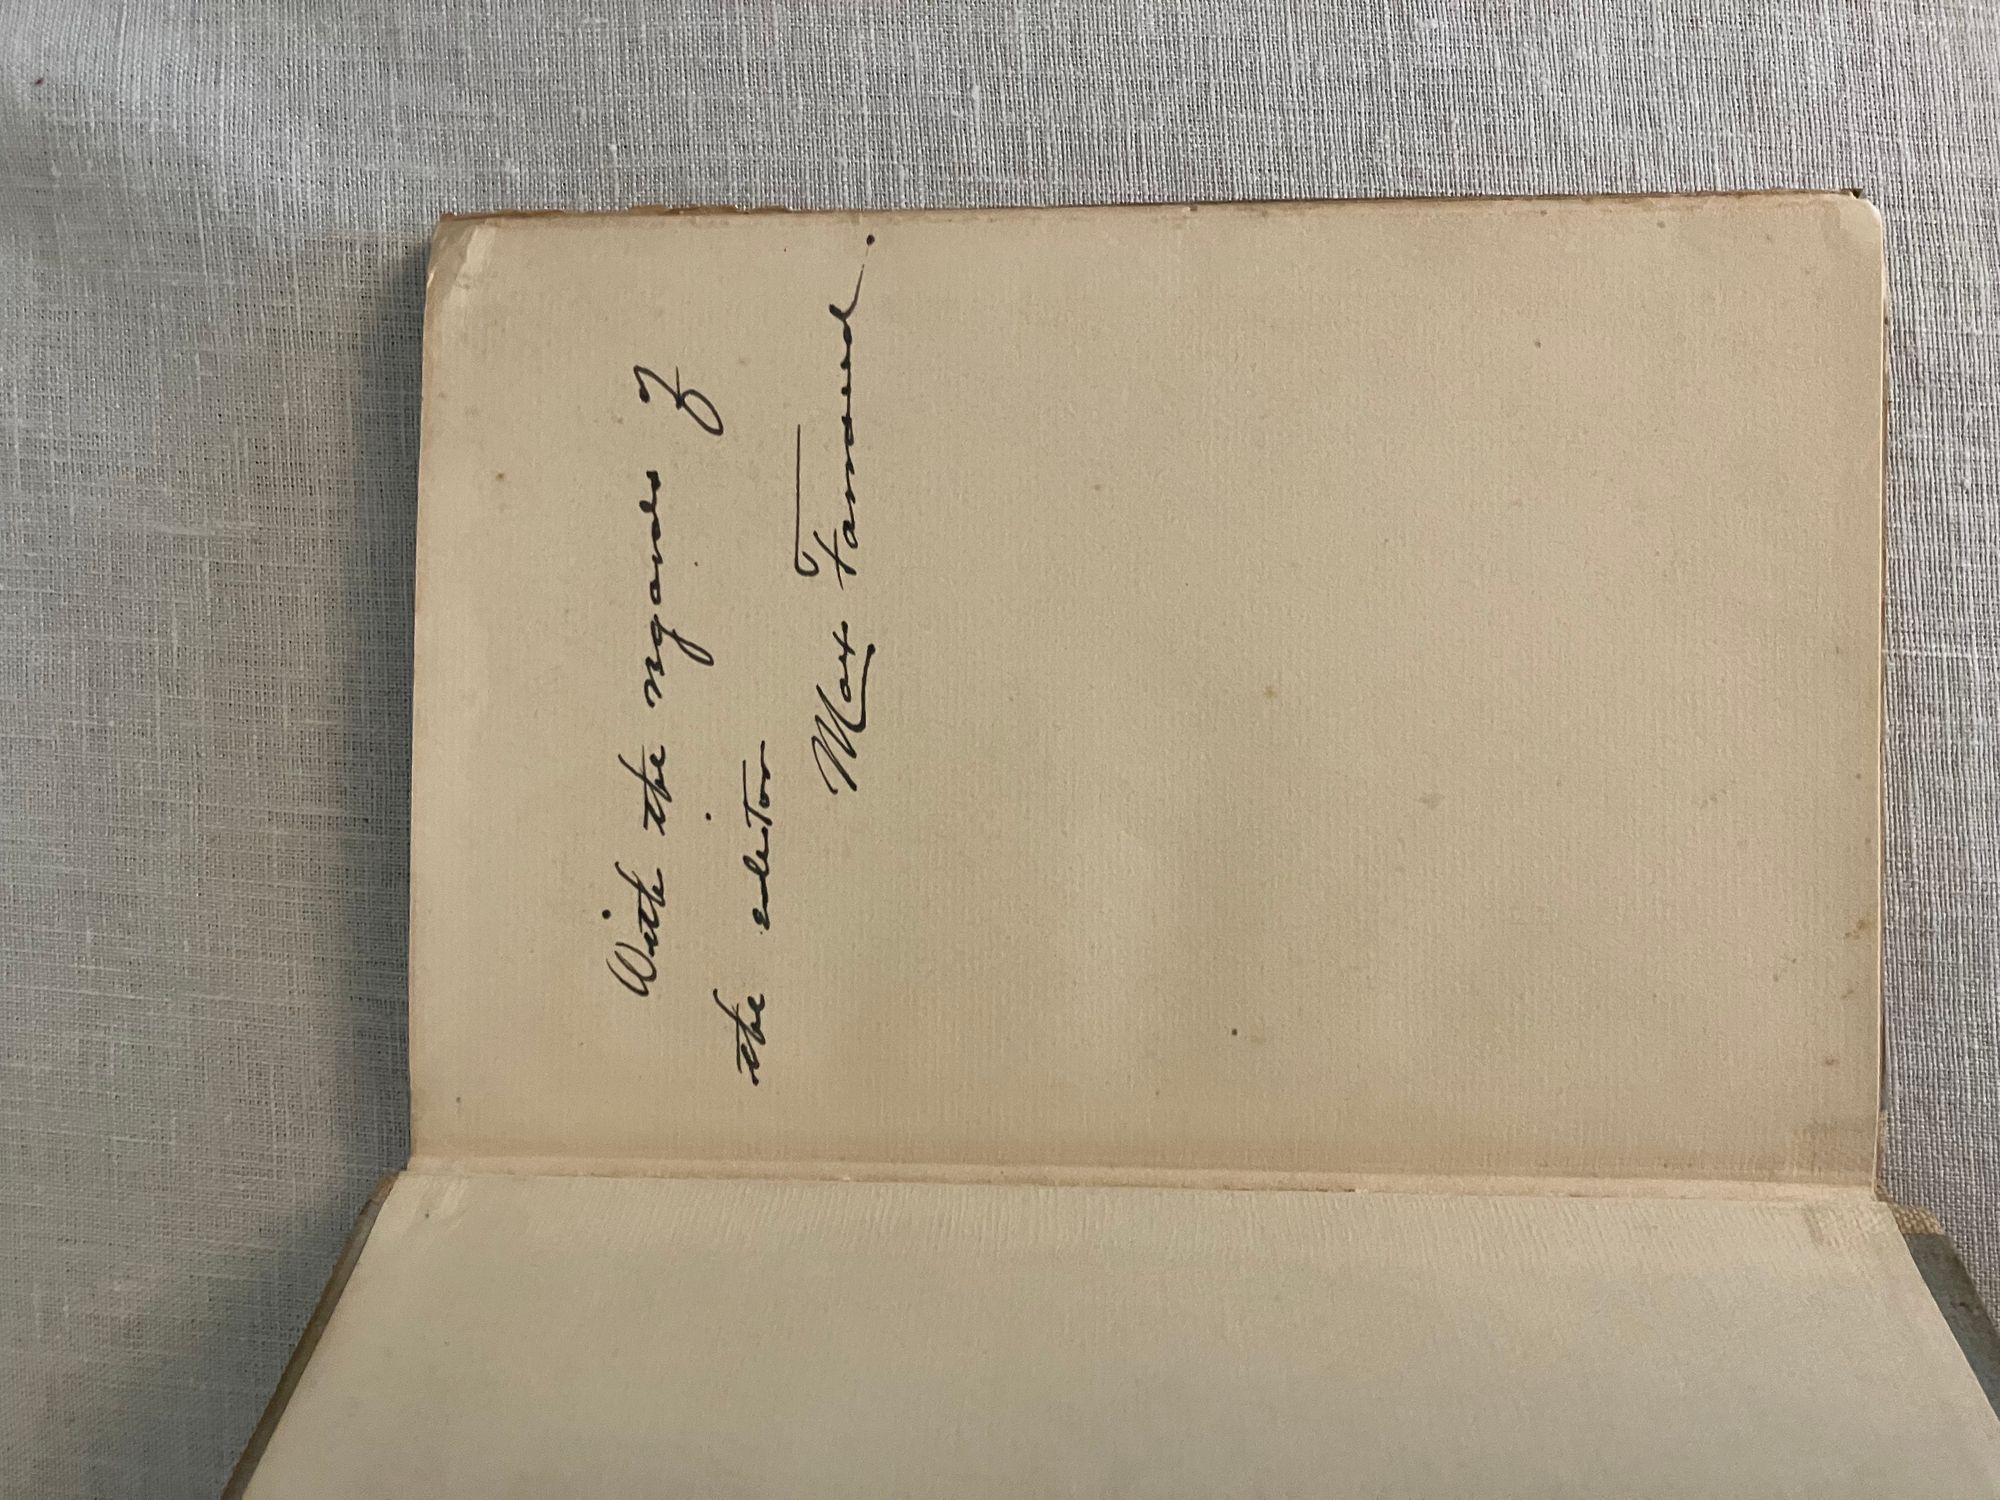 With the regards of
the editor
Max Farrand.